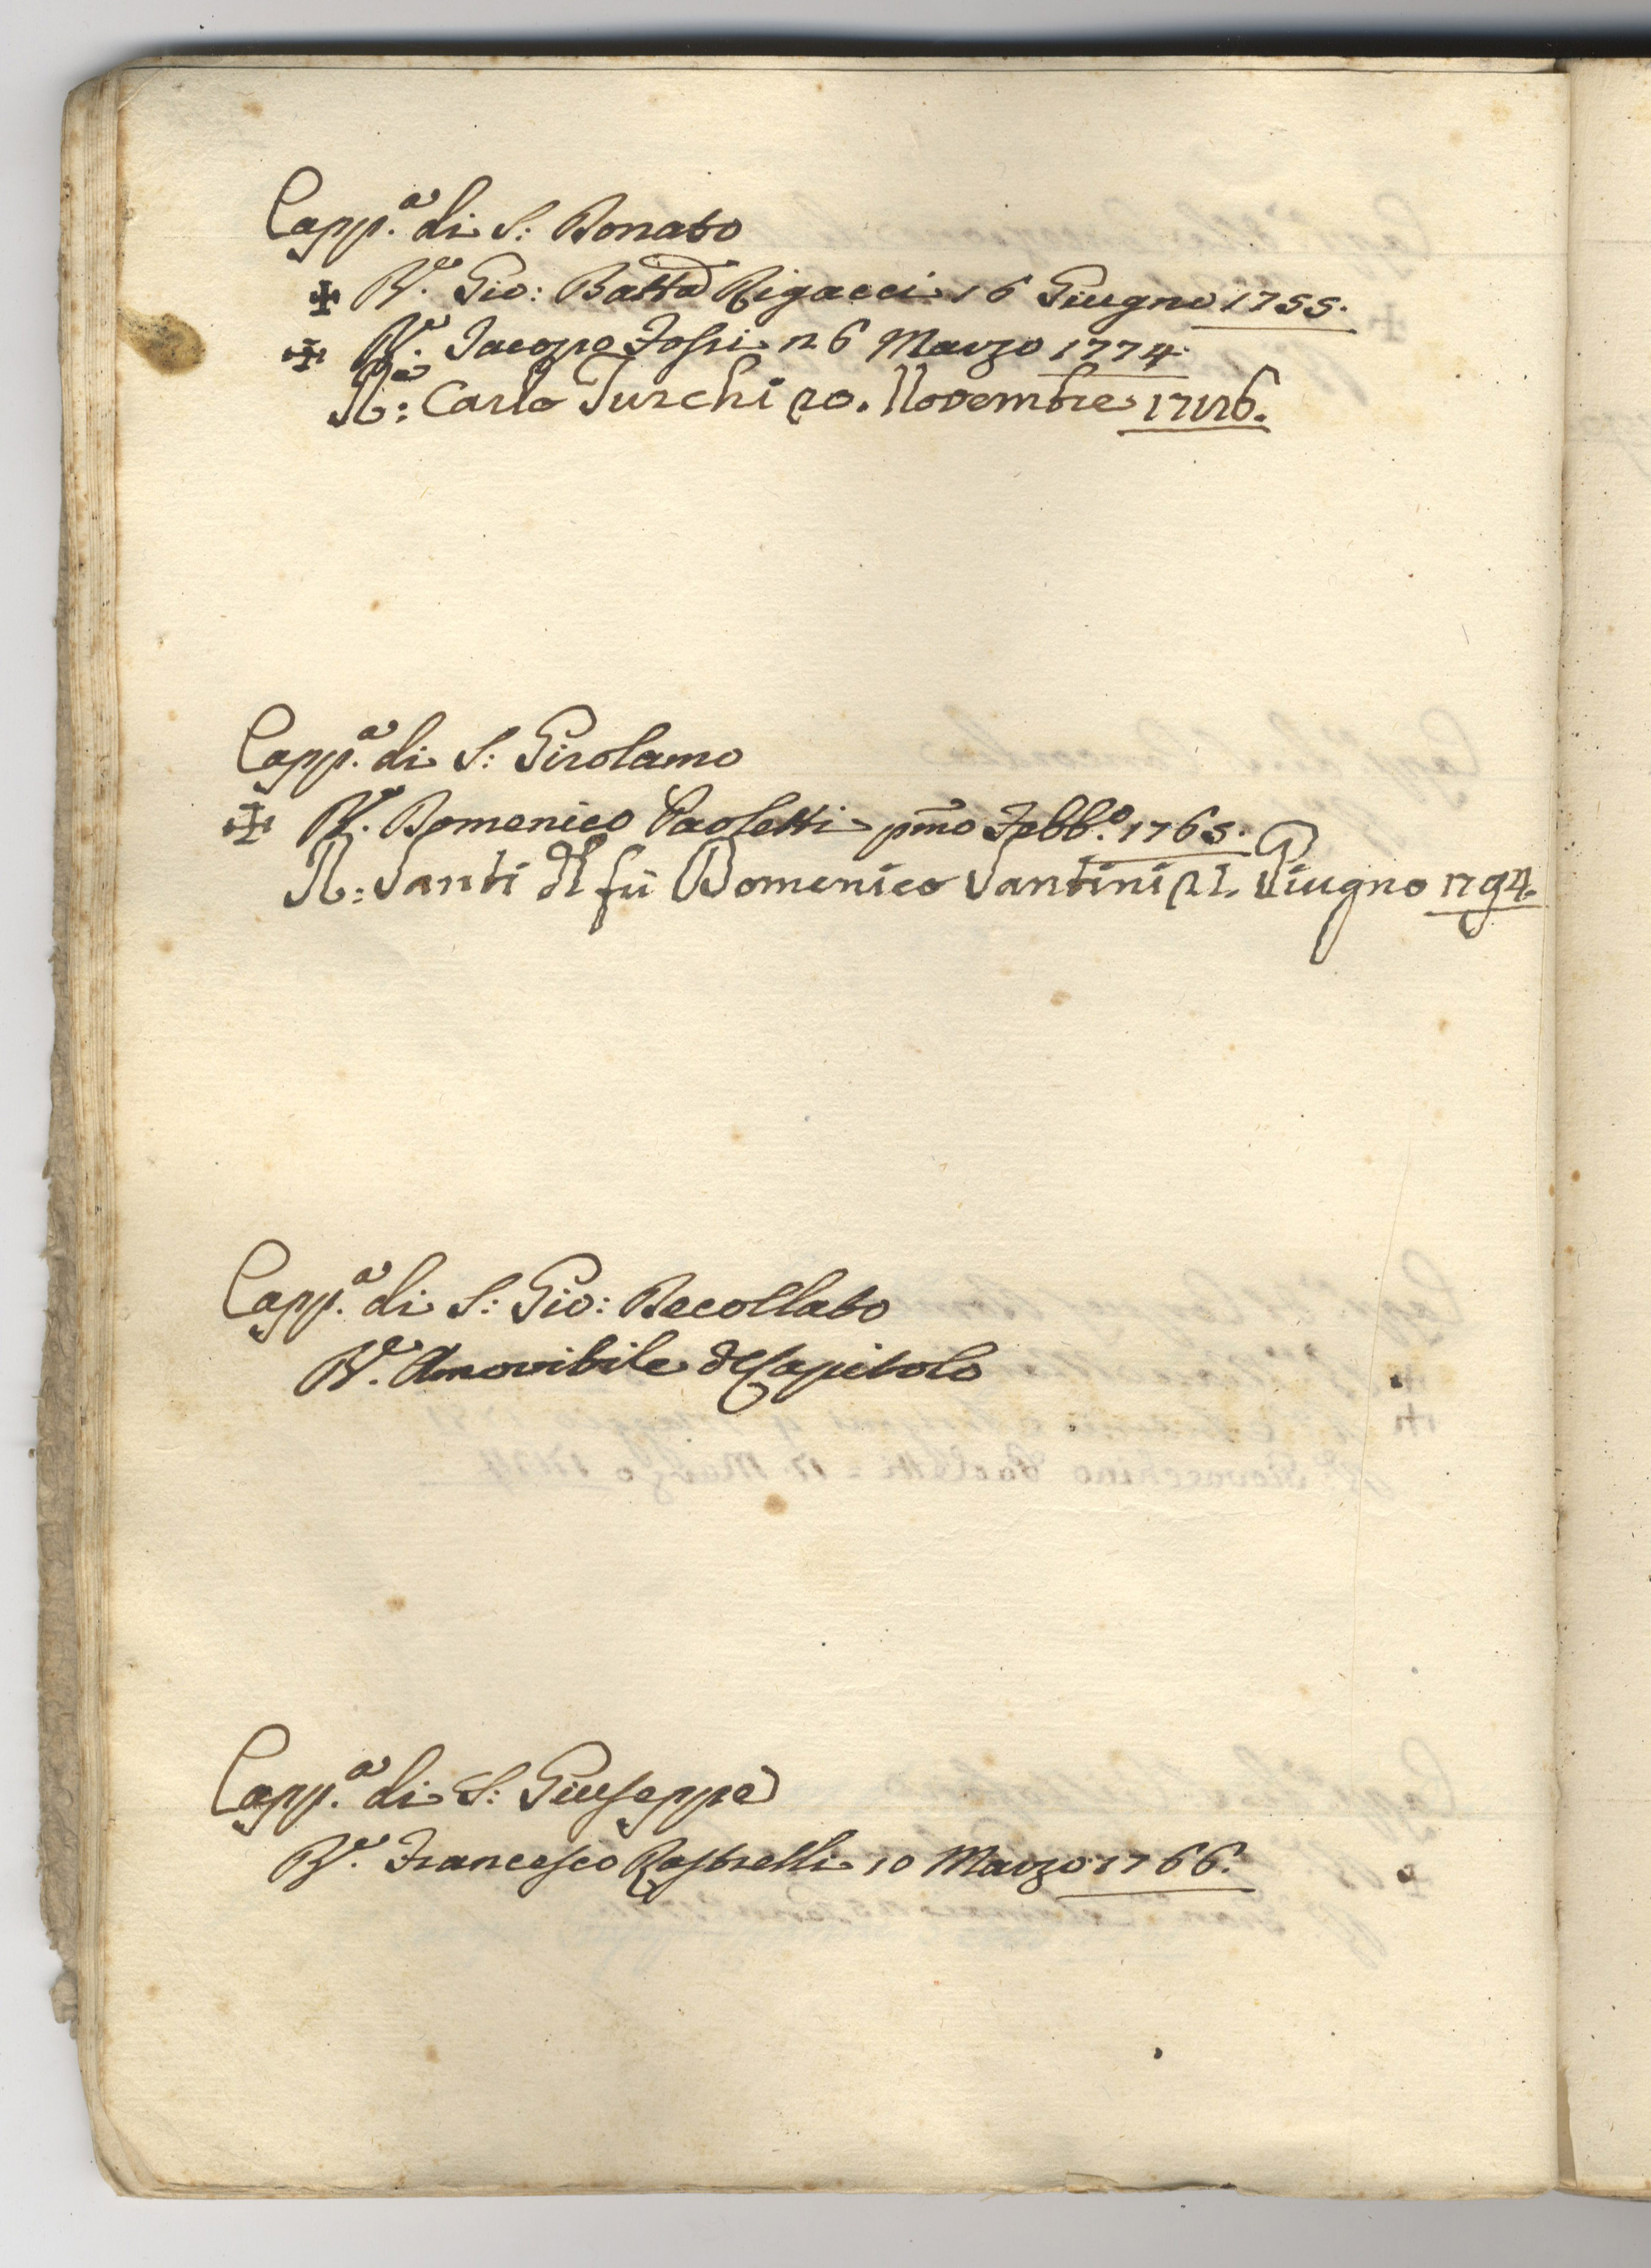 Capp.ª di S: Donato
✠ R.ᵉ Gio: Batta Rigacci 16 Giugno 1755.
✠ R.ᵉ Jacopo Fossi 26 Marzo 1774
R:ᵉ Carlo Turchi 20. Novembre
Capp.ª di S: Girolamo
✠ R.ᵉ Domenico Paoletti pmo Febb.º 1765.
R: Santi del fù Domenico Santini 21. Giugno 1794.
Capp.ª di S: Gio: Decollato
R.ᵉ Amovibile del Capitolo
Capp.ª di S: Giuseppe
R.ᵉ Francesco Rastrelli 10 Marzo 1766.